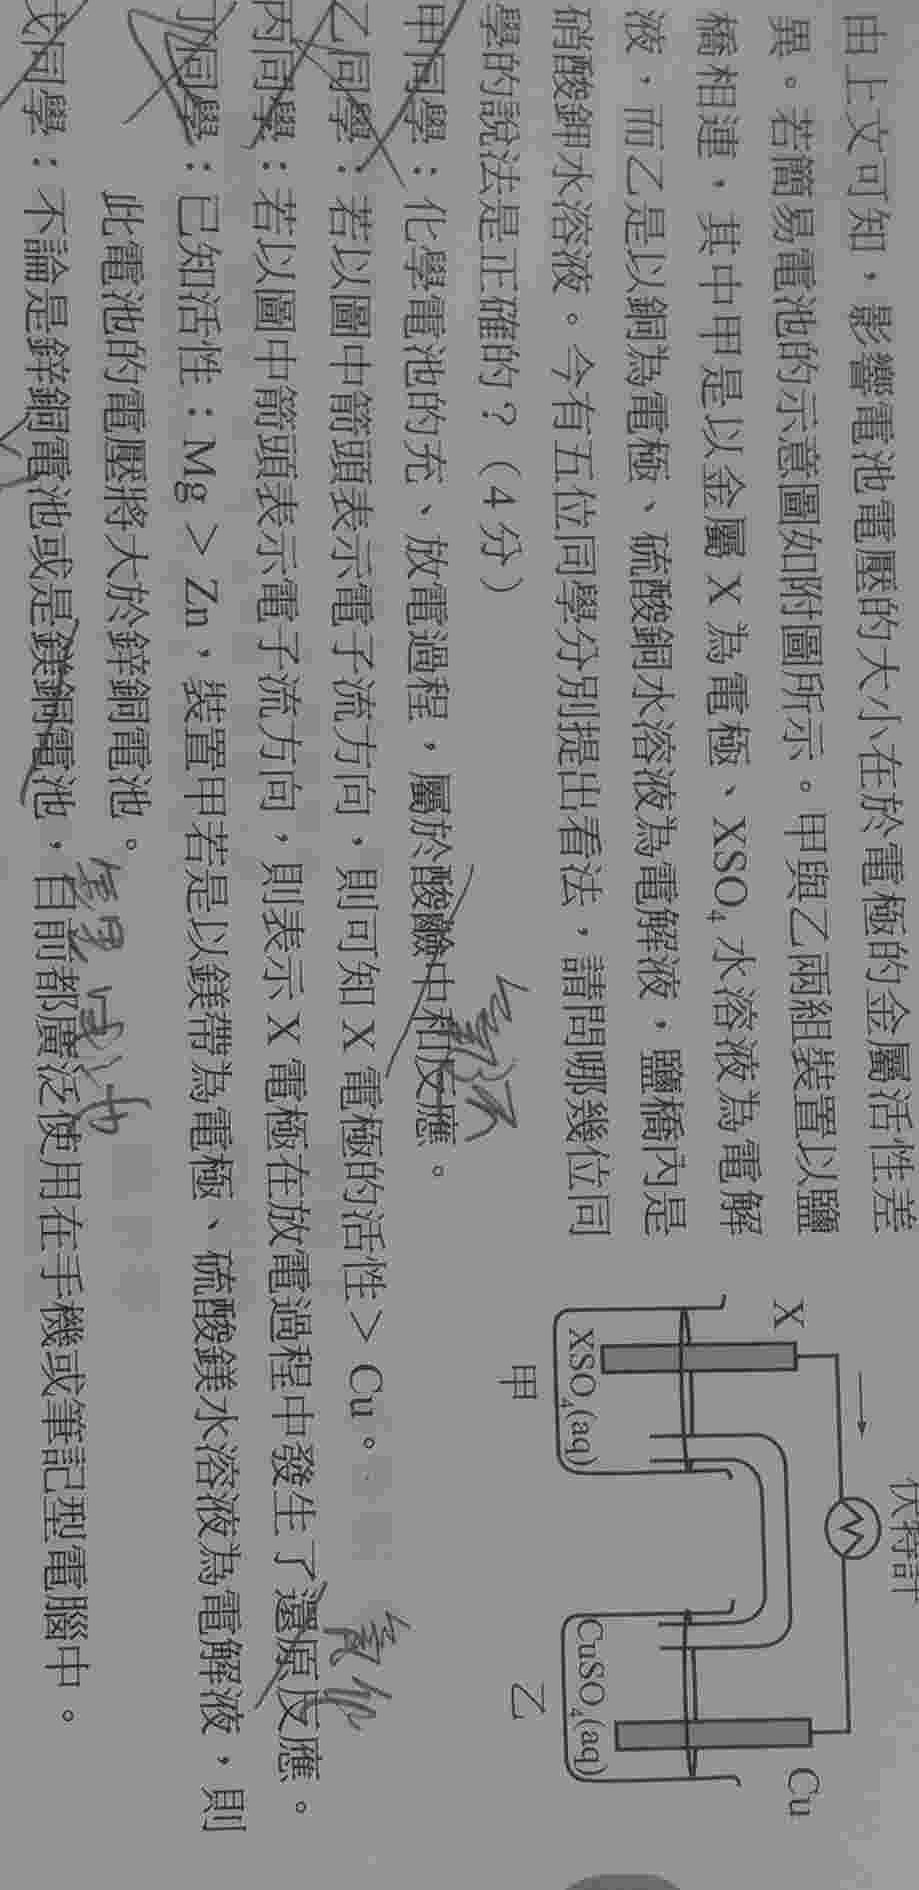 由上文可知，影響電池電壓的大小在於電極的金屬活性差
異。若簡易電池的示意圖如附圖所示。甲與乙兩組裝置以鹽
橋相連，其中甲是以金屬 X 為電極、XSO₄ 水溶液為電解
液，而乙是以銅為電極、硫酸銅水溶液為電解液，鹽橋內是
硝酸鉀水溶液。今有五位同學分別提出看法，請問哪幾位同
學的說法是正確的？（4 分）
伏特計
X
Cu
XSO₄(aq)
CuSO₄(aq)
甲
乙
甲同學：化學電池的充、放電過程，屬於酸鹼中和反應。
乙同學：若以圖中箭頭表示電子流方向，則可知 X 電極的活性 > Cu。
丙同學：若以圖中箭頭表示電子流方向，則表示 X 電極在放電過程中發生了還原反應。
氧化
丁同學：已知活性：Mg > Zn，裝置甲若是以鎂帶為電極、硫酸鎂水溶液為電解液，則
此電池的電壓將大於鋅銅電池。
戊同學：不論是鋅銅電池或是鎂銅電池，目前都廣泛使用在手機或筆記型電腦中。